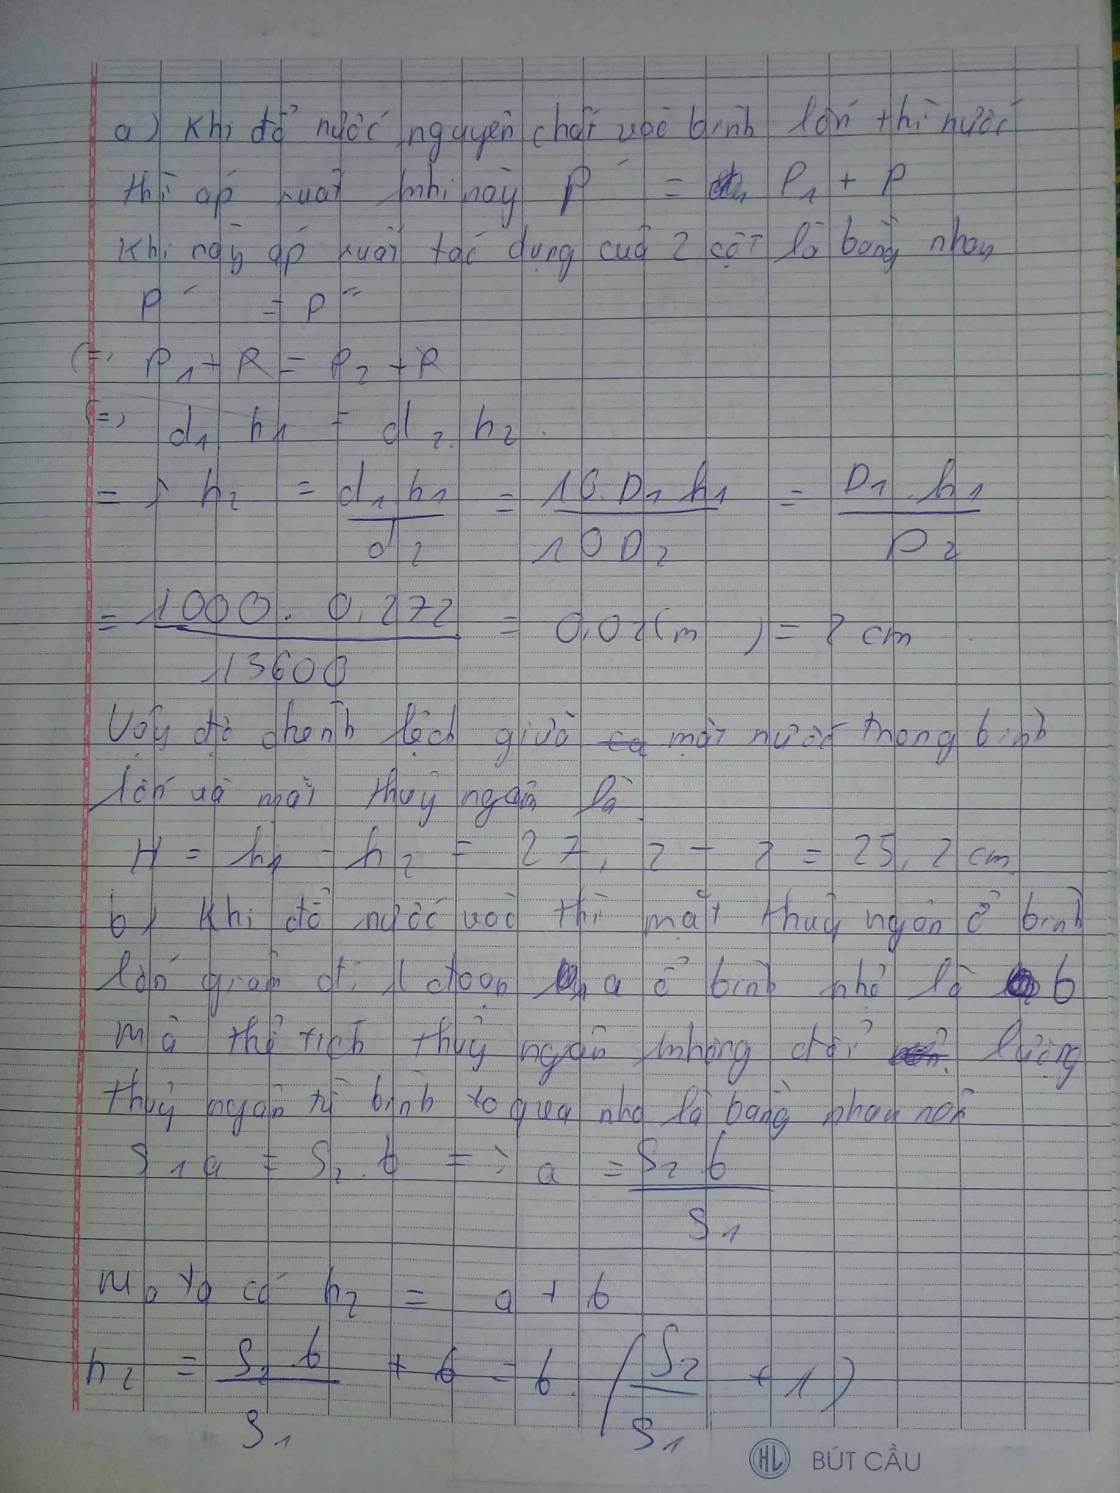 a) Khi đổ nước nguyên chất vào bình lớn thì nước
thì áp xuất khi này P' = P₁ + P
Khi này áp xuất tác dụng của 2 cột là bằng nhau
P' = P''
(=) P₁ + P = P₂ + P
(=) d₁ h₁ = d₂. h₂.
=> h₂ = d₁ h₁ / d₂ = 10.D₁ h₁ / 10 D₂ = D₁ . h₁ / D₂
= 1000. 0,272 / 13600 = 0,02 (m) = 2 cm
Vậy độ chênh lệch giữa mặt nước trong bình
lớn và mặt thuỷ ngân là
H = h₁ - h₂ = 27,2 - 2 = 25,2 cm
b) Khi đổ nước vào thì mặt thuỷ ngân ở bình
lớn giảm đi 1 đoạn a ở bình nhỏ là b
Mà thể tích thuỷ ngân không đổi lượng
thuỷ ngân từ bình to qua nhỏ là bằng nhau nên
S₁ a = S₂. b => a = S₂ b / S₁
Mà ta có h₂ = a + b
h₂ = S₂ b / S₁ + b = b. (S₂ / S₁ + 1)
HL BÚT CẦU